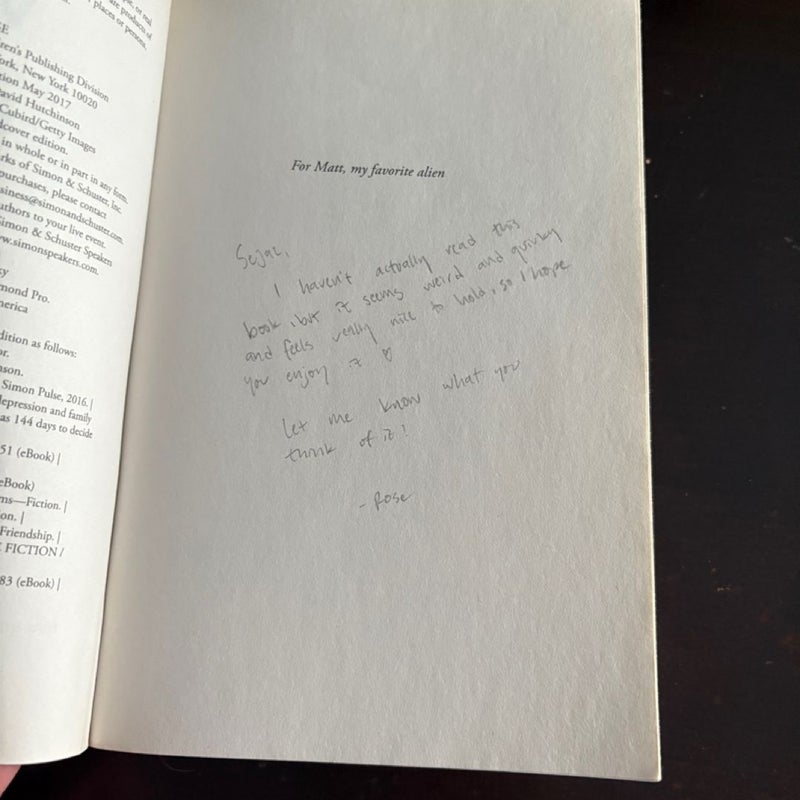 se, or real
are products of
places or persons,
SE
ren's Publishing Division
York, New York 10020
tion May 2017
avid Hutchinson
Cubird/Getty Images
dcover edition.
in whole or in part in any form.
rks of Simon & Schuster, Inc.
purchases, please contact
siness@simonandschuster.com.
uthors to your live event.
Simon & Schuster Speakers
ww.simonspeakers.com.
ky
mond Pro.
merica
dition as follows:
or.
nson.
Simon Pulse, 2016. |
depression and family
as 144 days to decide
51 (eBook) |
eBook)
ms—Fiction. |
on. |
Friendship. |
FICTION /
83 (eBook) |
For Matt, my favorite alien
Sejal,
I haven't actually read this
book, but it seems weird and quirky
and feels really nice to hold, so I hope
you enjoy it ♡
Let me know what you
think of it!
- Rose